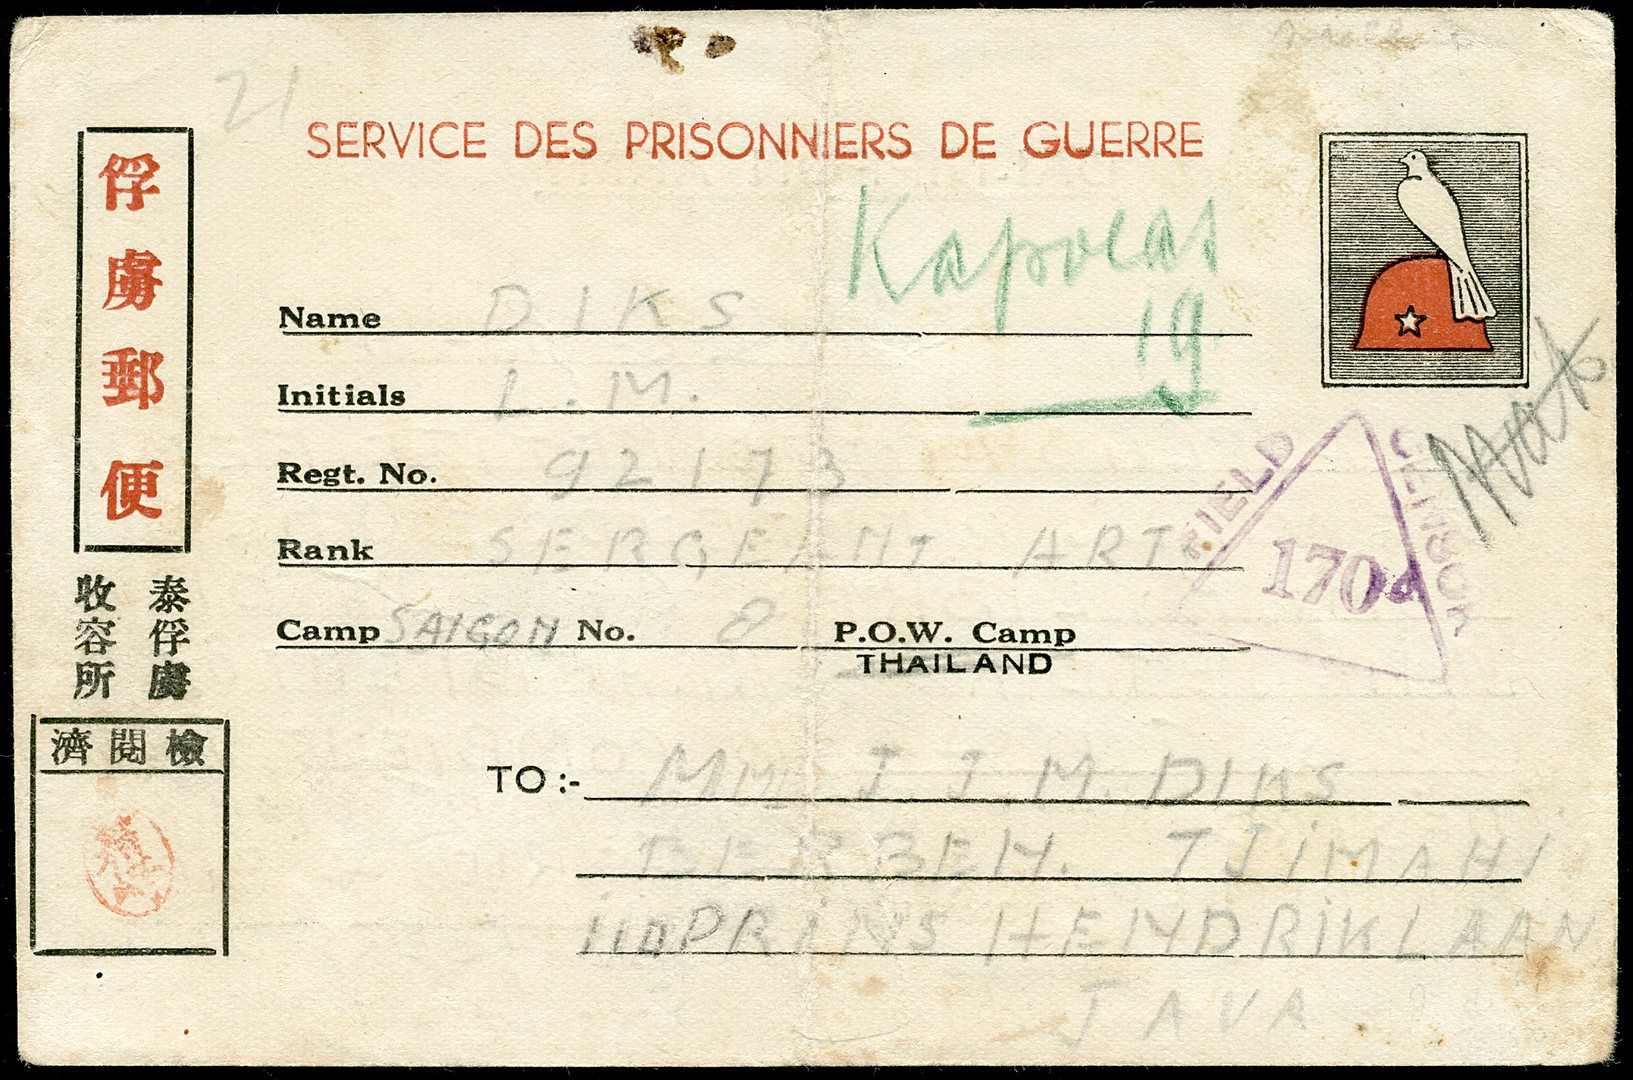 21
SERVICE DES PRISONNIERS DE GUERRE
俘虜郵便
泰俘虜
收容所
檢閱濟
Kapocas
19
Name DIKS
Initials I.M.
Regt. No. 92173
Rank SERGEANT ART
Camp SAIGON No. 8 P.O.W. Camp
THAILAND
FIELD CENSOR
170
TO:- MME J.J.M. DIKS
BERBEK. TJIMAHI
PRINS HENDRIKLAAN
JAVA